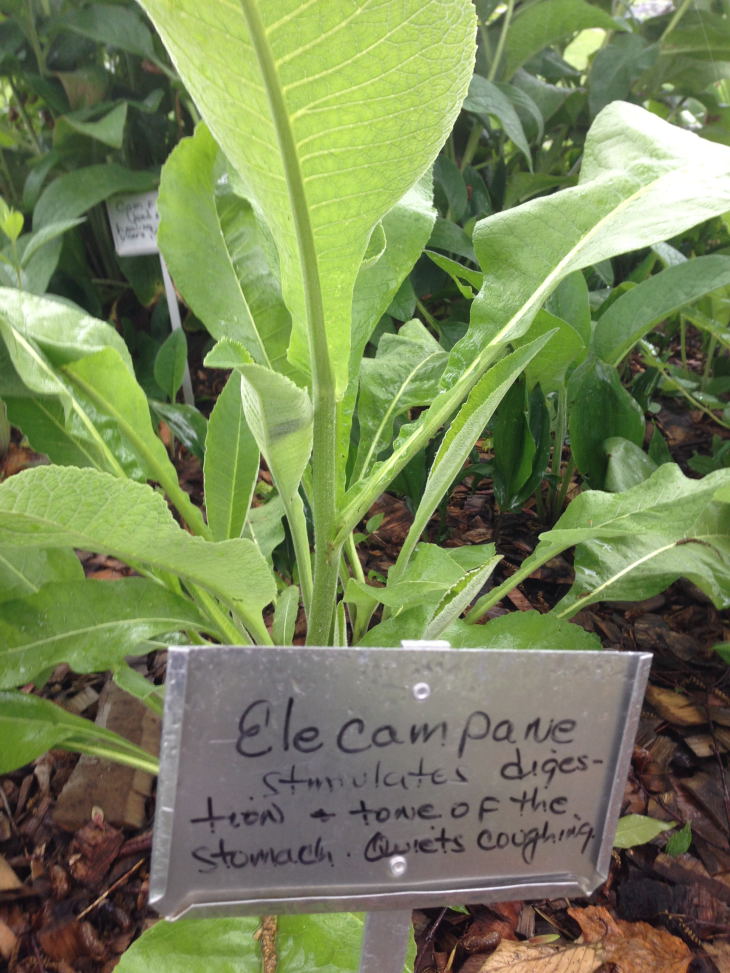 Elecampane
stimulates diges-
tion + tone of the
stomach. Quiets coughing.